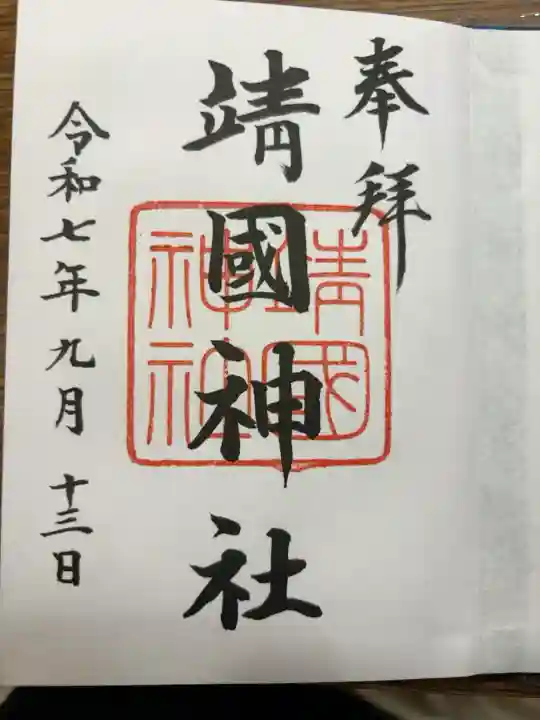 奉拜
靖國神社
靖國神社
令和七年九月十三日